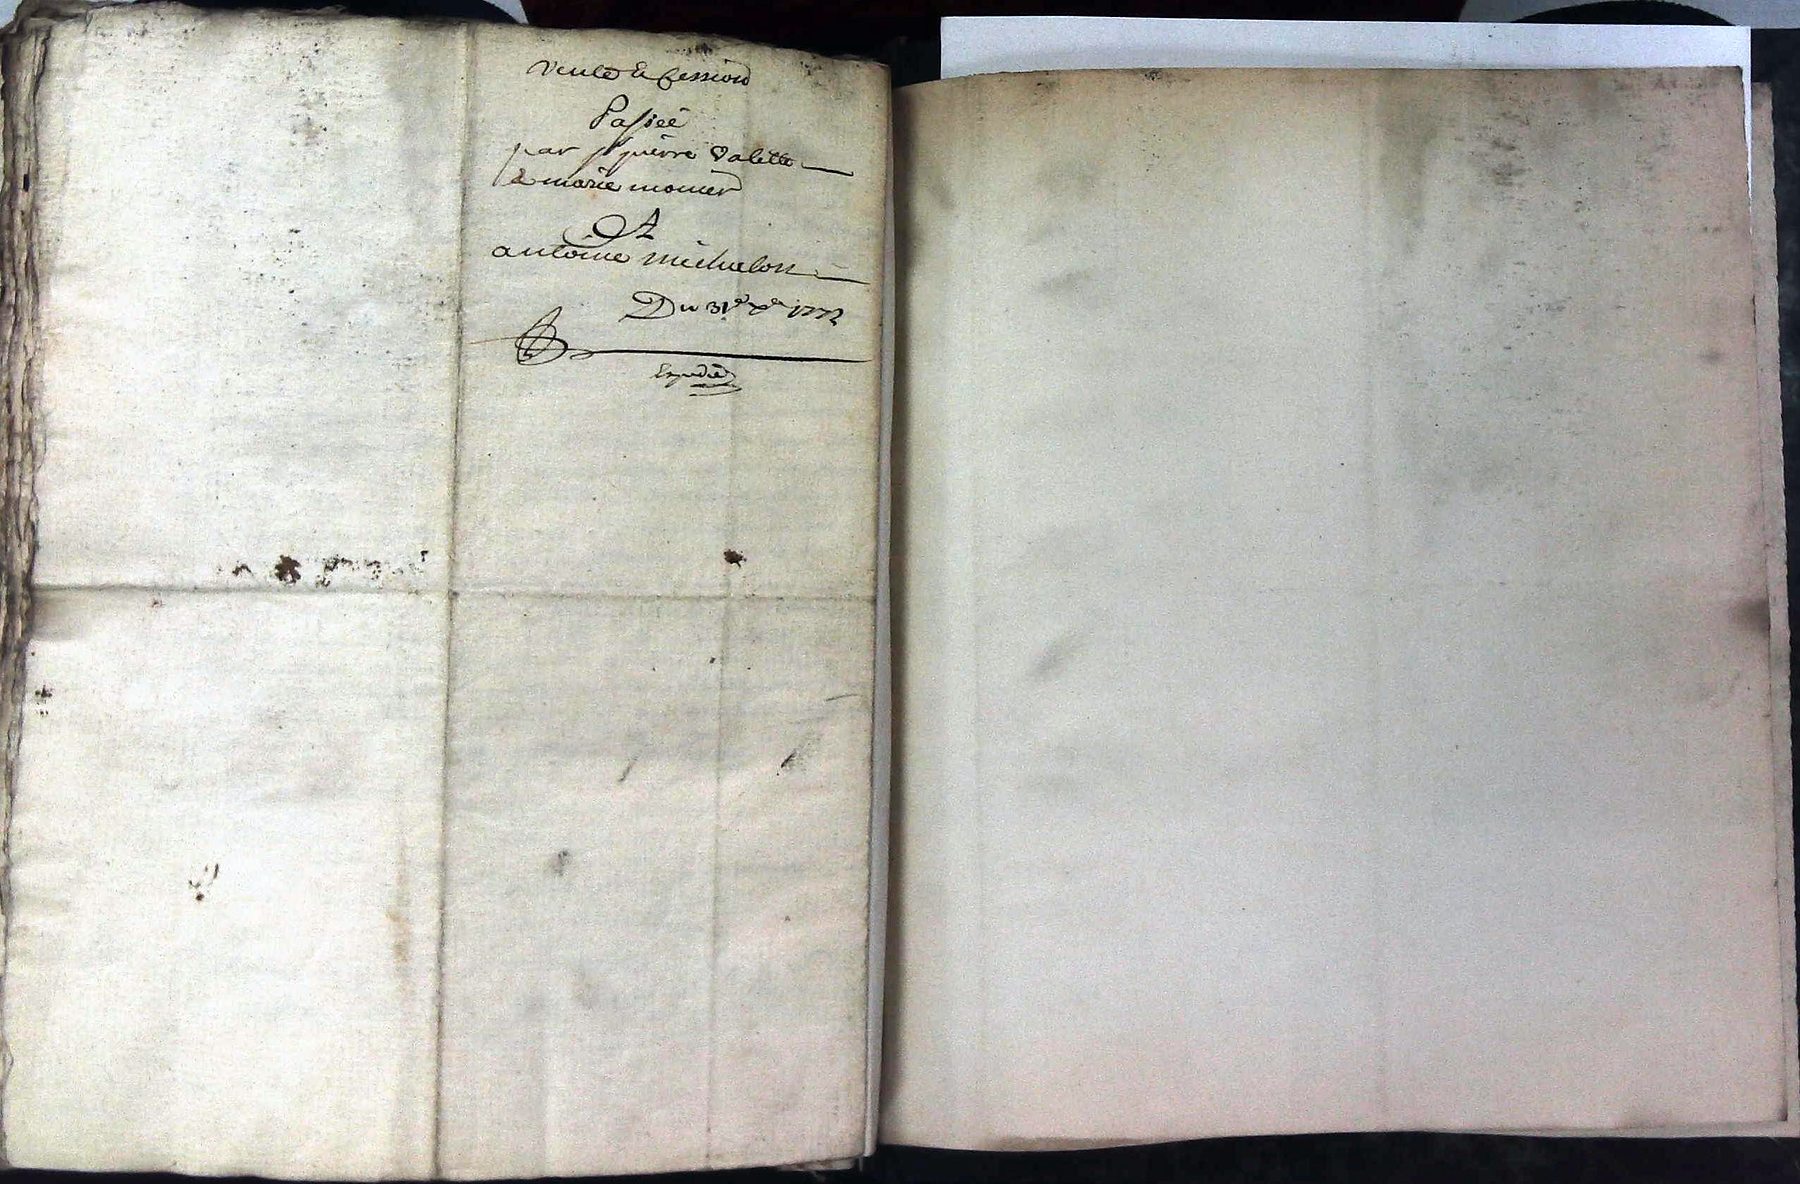 vente & cession
Passée
par pierre valette
& marie monier
A
antoine michalon
Du 31e Xbre 1772
Expedié